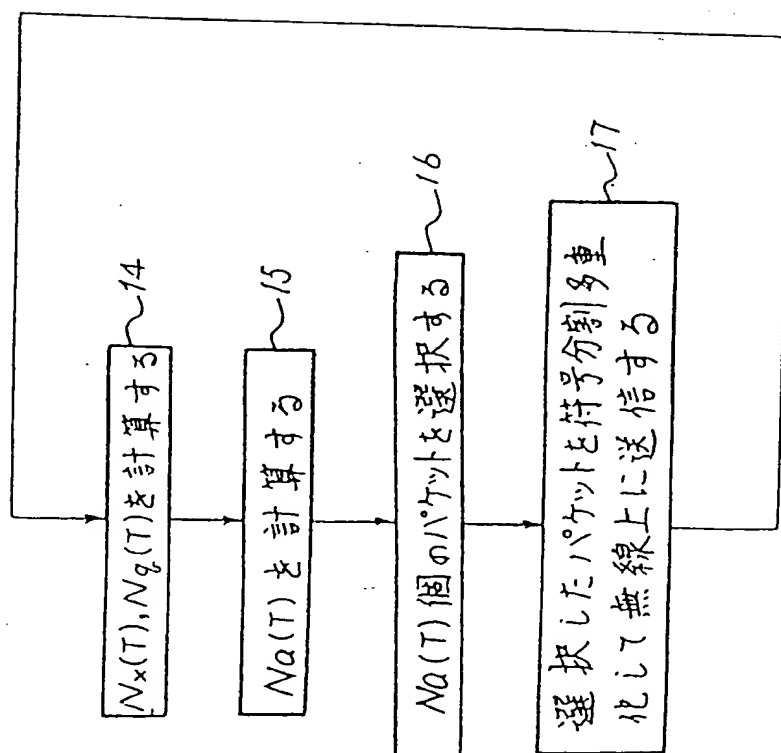 14
Nx(T),Nq(T)を計算する
15
Na(T)を計算する
16
Na(T)個のパケットを選択する
17
選択したパケットを符号分割多重
化して無線上に送信する